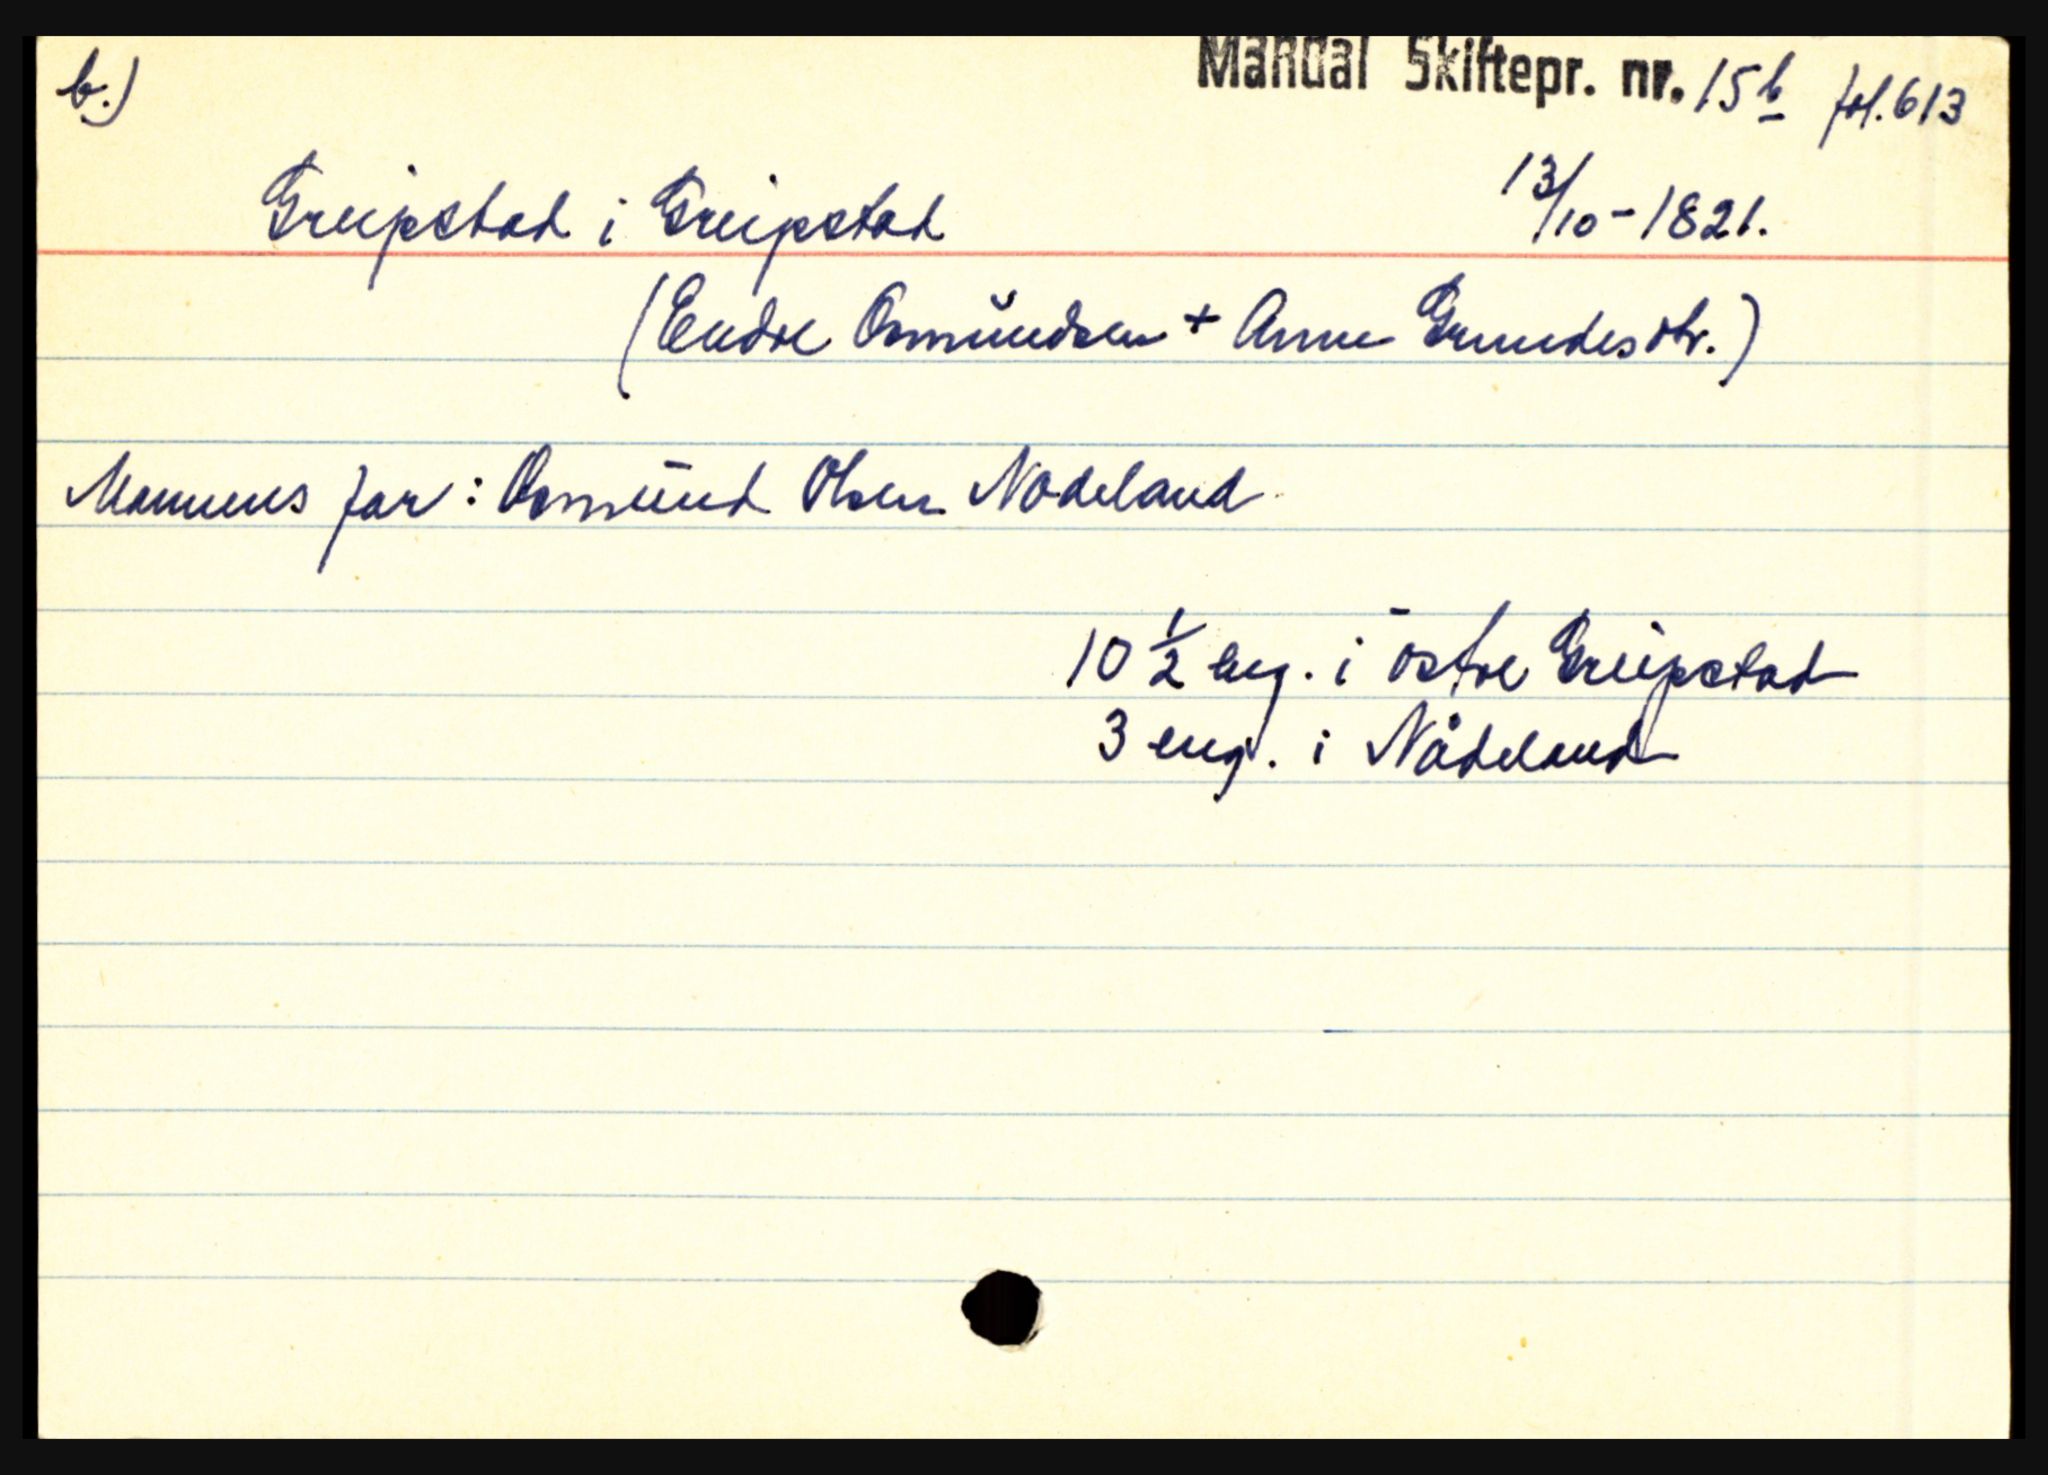 b.) Mandal Skiftepr. nr. 15b fol. 613
Greipstad i Greipstad 13/10-1821.
(Endre Osmundsen + Anne Grundesdtr.)
Mannens far: Osmund Olsen Nodeland
10 1/2 eng. i östre Greipstad
3 eng. i Nådeland